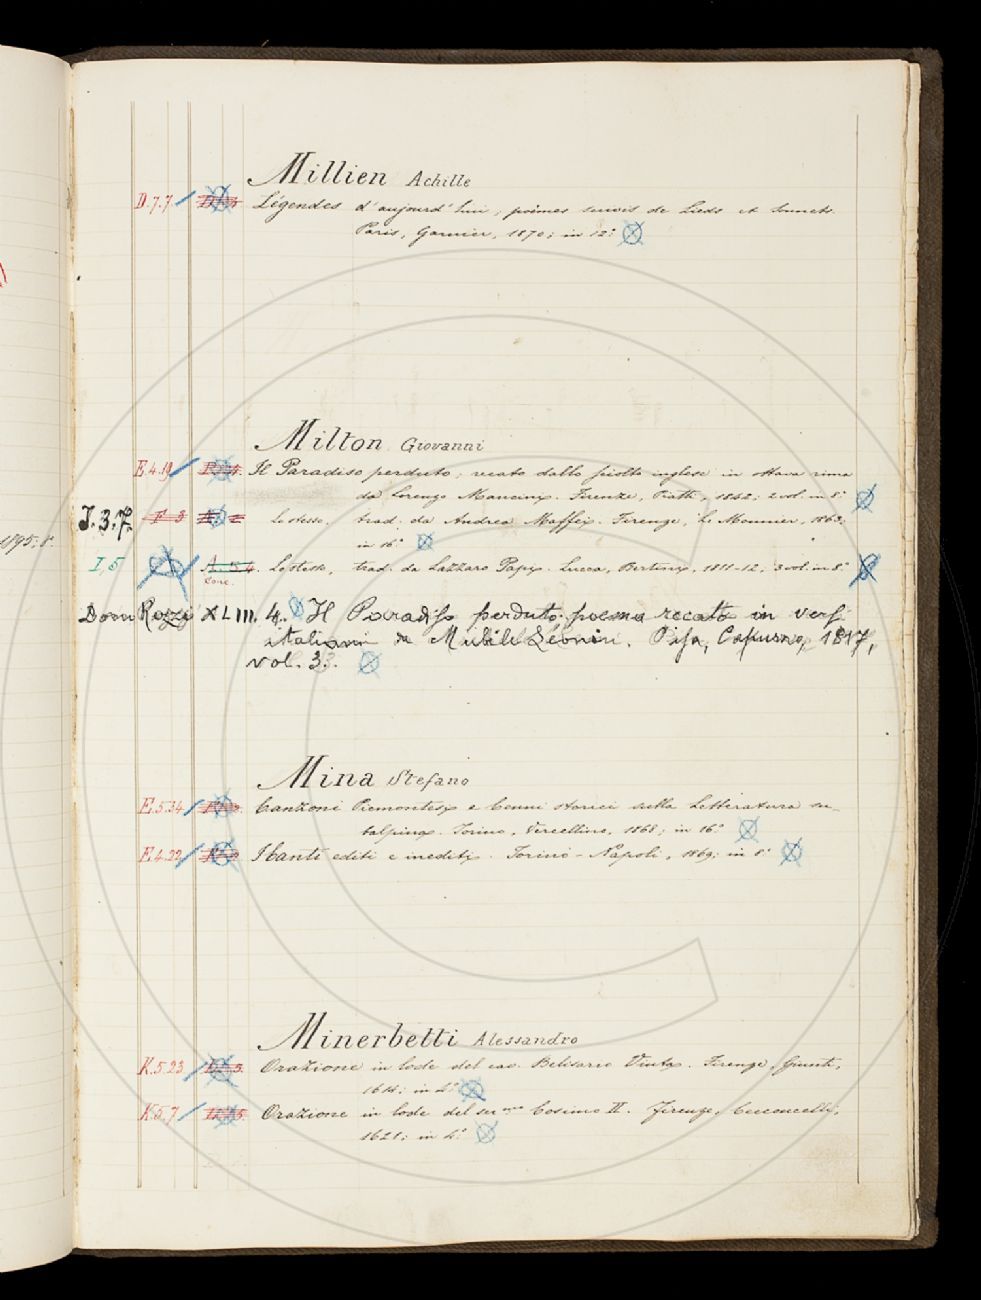 Millien Achille
D.7.7 Légendes d'aujourd'hui, poèmes suivis de Lieds et Sonnets.
Paris, Garnier, 1870; in 12.°
Milton Giovanni
E.4.19 Il Paradiso perduto, recato dallo sciolto inglese in ottava rima
da Lorenzo Mancini. Firenze, Piatti, 1842; 2 vol. in 8.°
J.3.7. Lo stesso, trad. da Andrea Maffei. Firenze, Le Monnier, 1863;
in 16.°
1895; 8.°
I,5 A.5.4. Lo stesso, trad. da Lazzaro Papi. Lucca, Bertini, 1811-12; 3 vol. in 8.°
Conc.
Dono Rozzi XLIII. 4. Il Paradiso perduto. poema recato in versi
italiani da Michele Leoni. Pisa, Capurro, 1817,
vol. 3.
Mina Stefano
E.5.34 Canzoni Piemontesi e Cenni storici sulla Letteratura su-
balpina. Torino, Vercellino, 1868; in 16.°
E.4.22 Canti editi e inediti. Torino-Napoli, 1869; in 8.°
Minerbetti Alessandro
K.5.23 Orazione in lode del cav. Belisario Vinta. Firenze, Giunti,
1614; in 4.°
K.5.7 Orazione in lode del ser.mo Cosimo II. Firenze, Cecconcelli,
1621; in 4.°